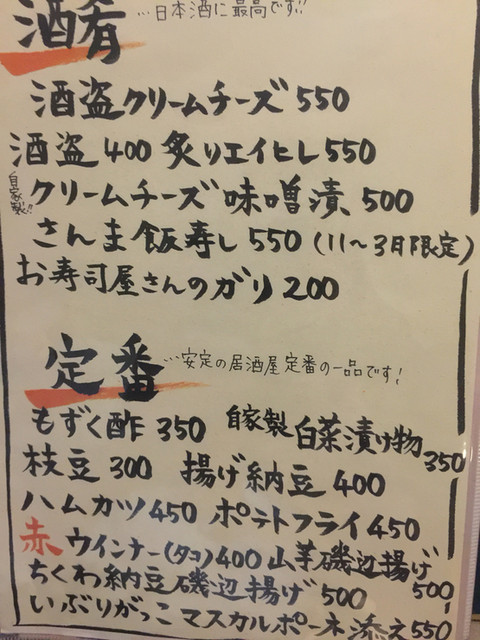 酒肴 …日本酒に最高です!!
酒盗クリームチーズ 550
酒盗 400 炙りエイヒレ 550
自家製!! クリームチーズ味噌漬 500
さんま飯寿し 550 (11〜3月限定)
お寿司屋さんのガリ 200
定番 …安定の居酒屋定番の一品です!
もずく酢 350 自家製白菜漬け物 350
枝豆 300 揚げ納豆 400
ハムカツ 450 ポテトフライ 450
赤ウインナー(タコ) 400 山芋磯辺揚げ 500
ちくわ納豆磯辺揚げ 500
いぶりがっこマスカルポーネ添え 550